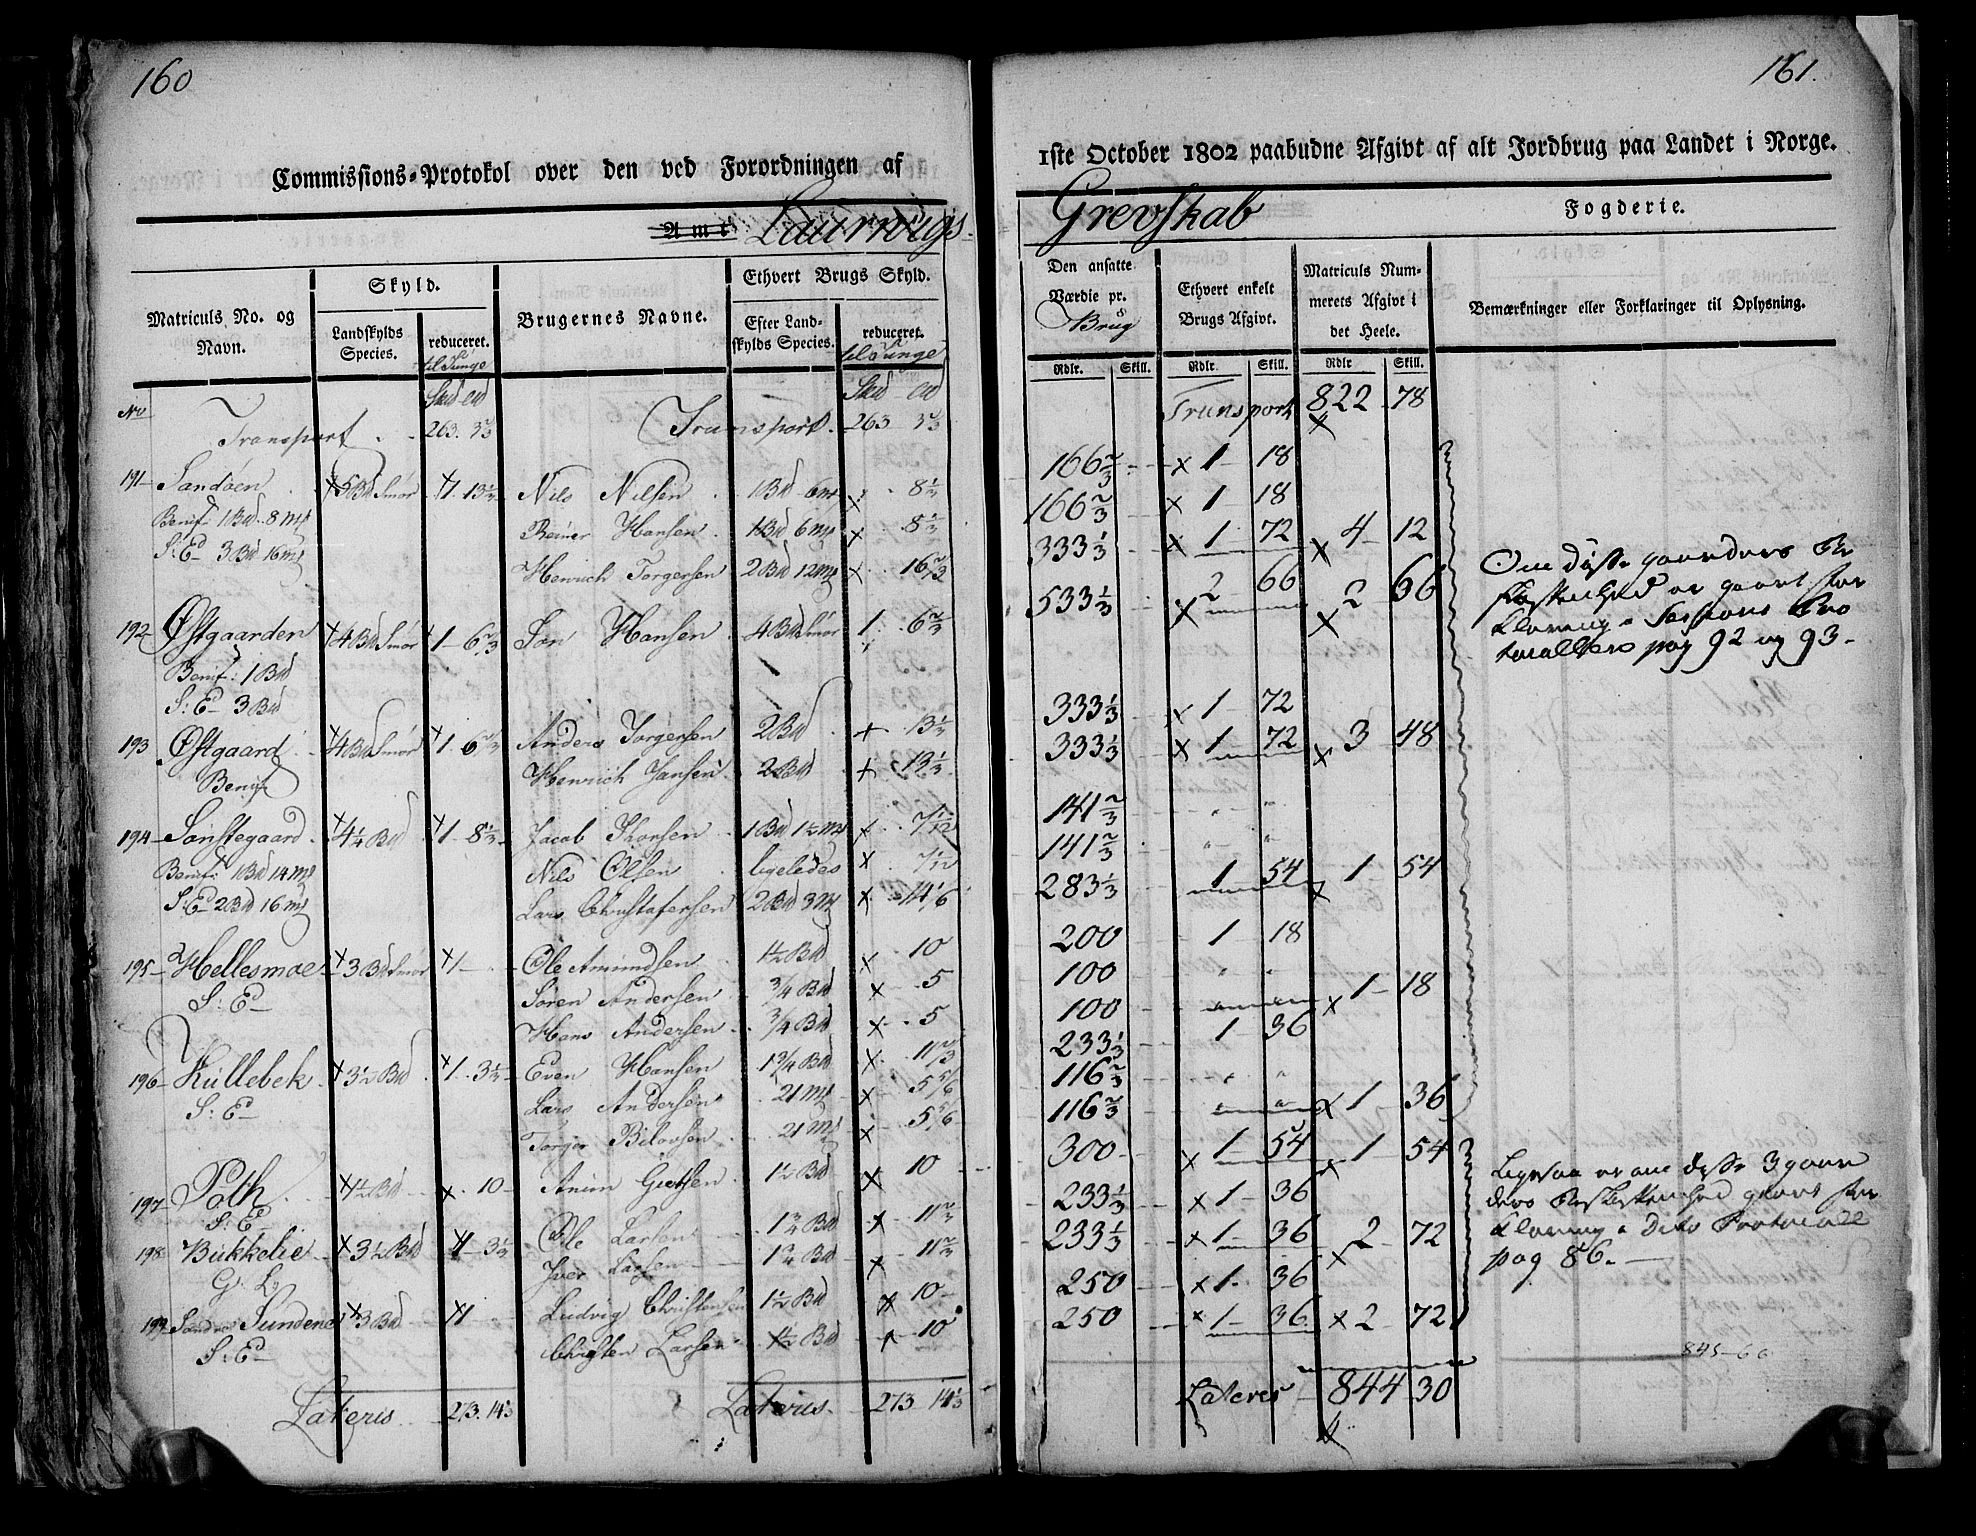 160
Commissions-Protokol over den ved Forordningen af
Amt Laurvigs-
Matriculs No. og Navn.
Skyld.
Landskylds Species.
reduceret.
til Tunge
Brugernes Navne.
Ethvert Brugs Skyld.
Efter Landskylds Species.
reduceret.
til Tunge
No
Transport . . 263. 3 2/3 Transport. 263 3 2/3
191 Sandøen 5 Bd Smør 1 13 1/3 Nils Nilsen 1 Bd 6 mk 8 1/3
Benif: 1 Bd 8 mk Reiner Hansen 1 Bd 6 mk 8 1/3
S: E 3 Bd 16 mk Henrich Torgersen 2 Bd 12 mk 16 2/3
192 Østgaarden 4 Bd Smør 1 6 2/3 Hansen 4 Bd Smør 1 6 2/3
Benif: 1 Bd
S: E 3 Bd
193 Østgaard 4 Bd Smør 1 6 2/3 Anders Torgersen 2 Bd 13 1/3
Benif Henrich Jansen 2 Bd 13 1/3
194 Sønstegaard 4 1/4 Bd 1 8 1/3 Jacob 1 Bd 1 1/2 mk 7 1/12
Benif: 1 Bd 14 mk Nils Olsen ligeledes 7 1/12
S: E 2 Bd 16 mk Lars Christofersen 2 Bd 3 mk 14 1/6
195 Hellesmoe 3 Bd Smør 1 Ole Amundsen 1 1/2 Bd 10
S: E Søren Andersen 3/4 Bd 5
Hans Andersen 3/4 Bd 5
196 Kullebek 3 1/2 Bd 1 3 1/3 Even Hansen 1 3/4 Bd 11 2/3
S: E Lars Andersen 21 mk 5 5/6
Torger 21 mk 5 5/6
197 Poth 1 1/2 Bd 10 1 1/2 Bd 10
S: E
198 Bukkelie 3 1/2 Bd 1 3 1/3 Ole Larsen 1 3/4 Bd 11 2/3
G: L Iver Larsen 1 3/4 Bd 11 2/3
199 Søndre Sundene 3 Bd 1 Ludvig Christensen 1 1/2 Bd 10
S: E Christen Larsen 1 1/2 Bd 10
Lateris 273. 14 1/3 Lateris. 273 14 1/3
161.
1ste October 1802 paabudne Afgivt af alt Jordbrug paa Landet i Norge.
Grevskab Fogderie.
Den ansatte Værdie pr.
Brug
Ethvert enkelt Brugs Afgivt.
Matriculs Nummerets Afgivt i det Heele.
Bemærkninger eller Forklaringer til Oplysning.
Rdlr. Skill. Rdlr. Skill. Rdlr. Skill.
Transport 822 78
166 2/3 1 18
166 2/3 1 18
333 1/3 1 72 4 12
533 1/3 2 66 2 66
Om disse gaarders Be
skaffenhed er gjort for
klaring i Sessions Pro
tocollens pag 92 og 93.
333 1/3 1 72
333 1/3 1 72 3 48
141 2/3 " "
141 2/3 " "
283 1/3 1 54 1 54
200 1 18
100 " "
100 " " 1 18
233 1/3 1 36
116 2/3 " "
116 2/3 " " 1 36
300 1 54 1 54
233 1/3 1 36
233 1/3 1 36 2 72
250 1 36
250 1 36 2 72
Ligesaa er om disse 3 gaar
ders Beskaffenhed gjort for
klaring i Dito Protocoll
pag 86.
845-66
Lateris 844 30